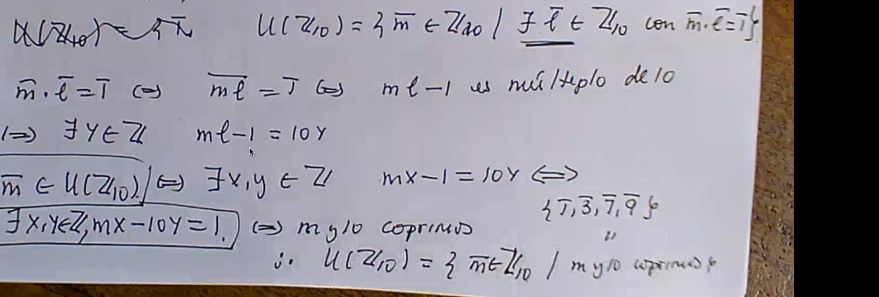 U(Z₁₀) = { m̄ ∈ Z₁₀ / ∃ l̄ ∈ Z₁₀ con m̄·l̄ = 1̄ }
m̄·l̄ = 1̄ ⇔ \overline{ml} = 1̄ ⇔ ml-1 es múltiplo de 10
⇔ ∃ y ∈ Z ml-1 = 10y
m̄ ∈ U(Z₁₀) ⇔ ∃ x,y ∈ Z mx-1 = 10y ⇔
∃ x,y ∈ Z, mx-10y = 1. ⇔ m y 10 coprimos
{ 1̄, 3̄, 7̄, 9̄ }
"
∴ U(Z₁₀) = { m̄ ∈ Z₁₀ / m y 10 coprimos }